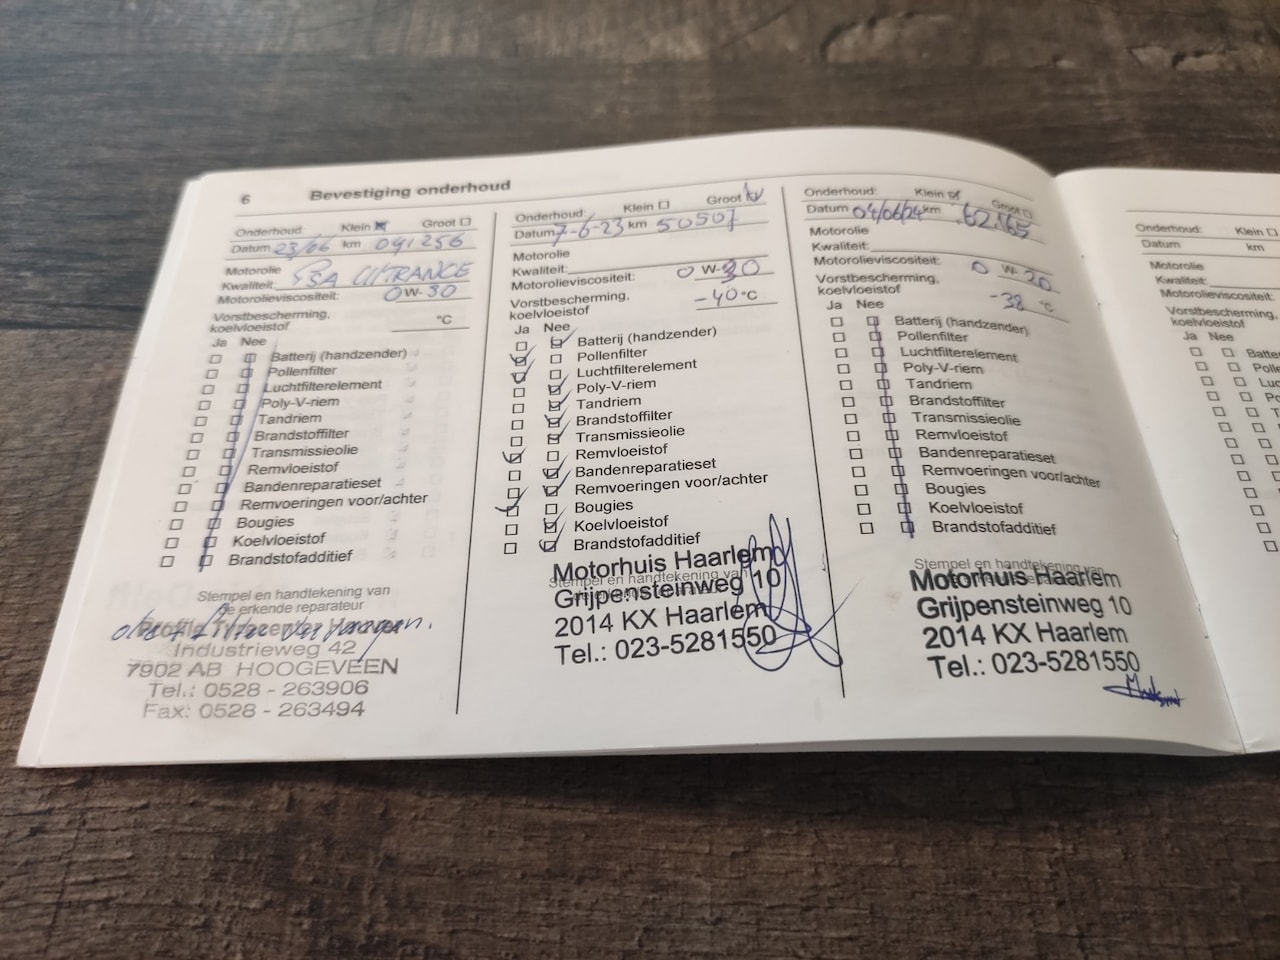 6 Bevestiging onderhoud
Onderhoud: Klein Groot
Datum 23/06 km 041256
Motorolie
Kwaliteit: PSA ULTRANCE
Motorolieviscositeit: 0 W-30
Vorstbescherming,
koelvloeistof °C
Ja Nee
Batterij (handzender)
Pollenfilter
Luchtfilterelement
Poly-V-riem
Tandriem
Brandstoffilter
Transmissieolie
Remvloeistof
Bandenreparatieset
Remvoeringen voor/achter
Bougies
Koelvloeistof
Brandstofadditief
Stempel en handtekening van
de erkende reparateur
Industrieweg 42
7902 AB HOOGEVEEN
Tel.: 0528 - 263906
Fax: 0528 - 263494
Onderhoud: Klein Groot
Datum 7-6-23 km 50507
Motorolie
Kwaliteit:
Motorolieviscositeit: 0 W-30
Vorstbescherming,
koelvloeistof -40 °C
Ja Nee
Batterij (handzender)
Pollenfilter
Luchtfilterelement
Poly-V-riem
Tandriem
Brandstoffilter
Transmissieolie
Remvloeistof
Bandenreparatieset
Remvoeringen voor/achter
Bougies
Koelvloeistof
Brandstofadditief
Stempel en handtekening van
Motorhuis Haarlem
Grijpensteinweg 10
2014 KX Haarlem
Tel.: 023-5281550
Onderhoud: Klein Groot
Datum 04/06/24 km 62.165
Motorolie
Kwaliteit:
Motorolieviscositeit: 0 W-20
Vorstbescherming,
koelvloeistof -38 °C
Ja Nee
Batterij (handzender)
Pollenfilter
Luchtfilterelement
Poly-V-riem
Tandriem
Brandstoffilter
Transmissieolie
Remvloeistof
Bandenreparatieset
Remvoeringen voor/achter
Bougies
Koelvloeistof
Brandstofadditief
Stempel en handtekening van
Motorhuis Haarlem
Grijpensteinweg 10
2014 KX Haarlem
Tel.: 023-5281550
Onderhoud: Klein
Datum km
Motorolie
Kwaliteit:
Motorolieviscositeit:
Vorstbescherming,
koelvloeistof
Ja Nee